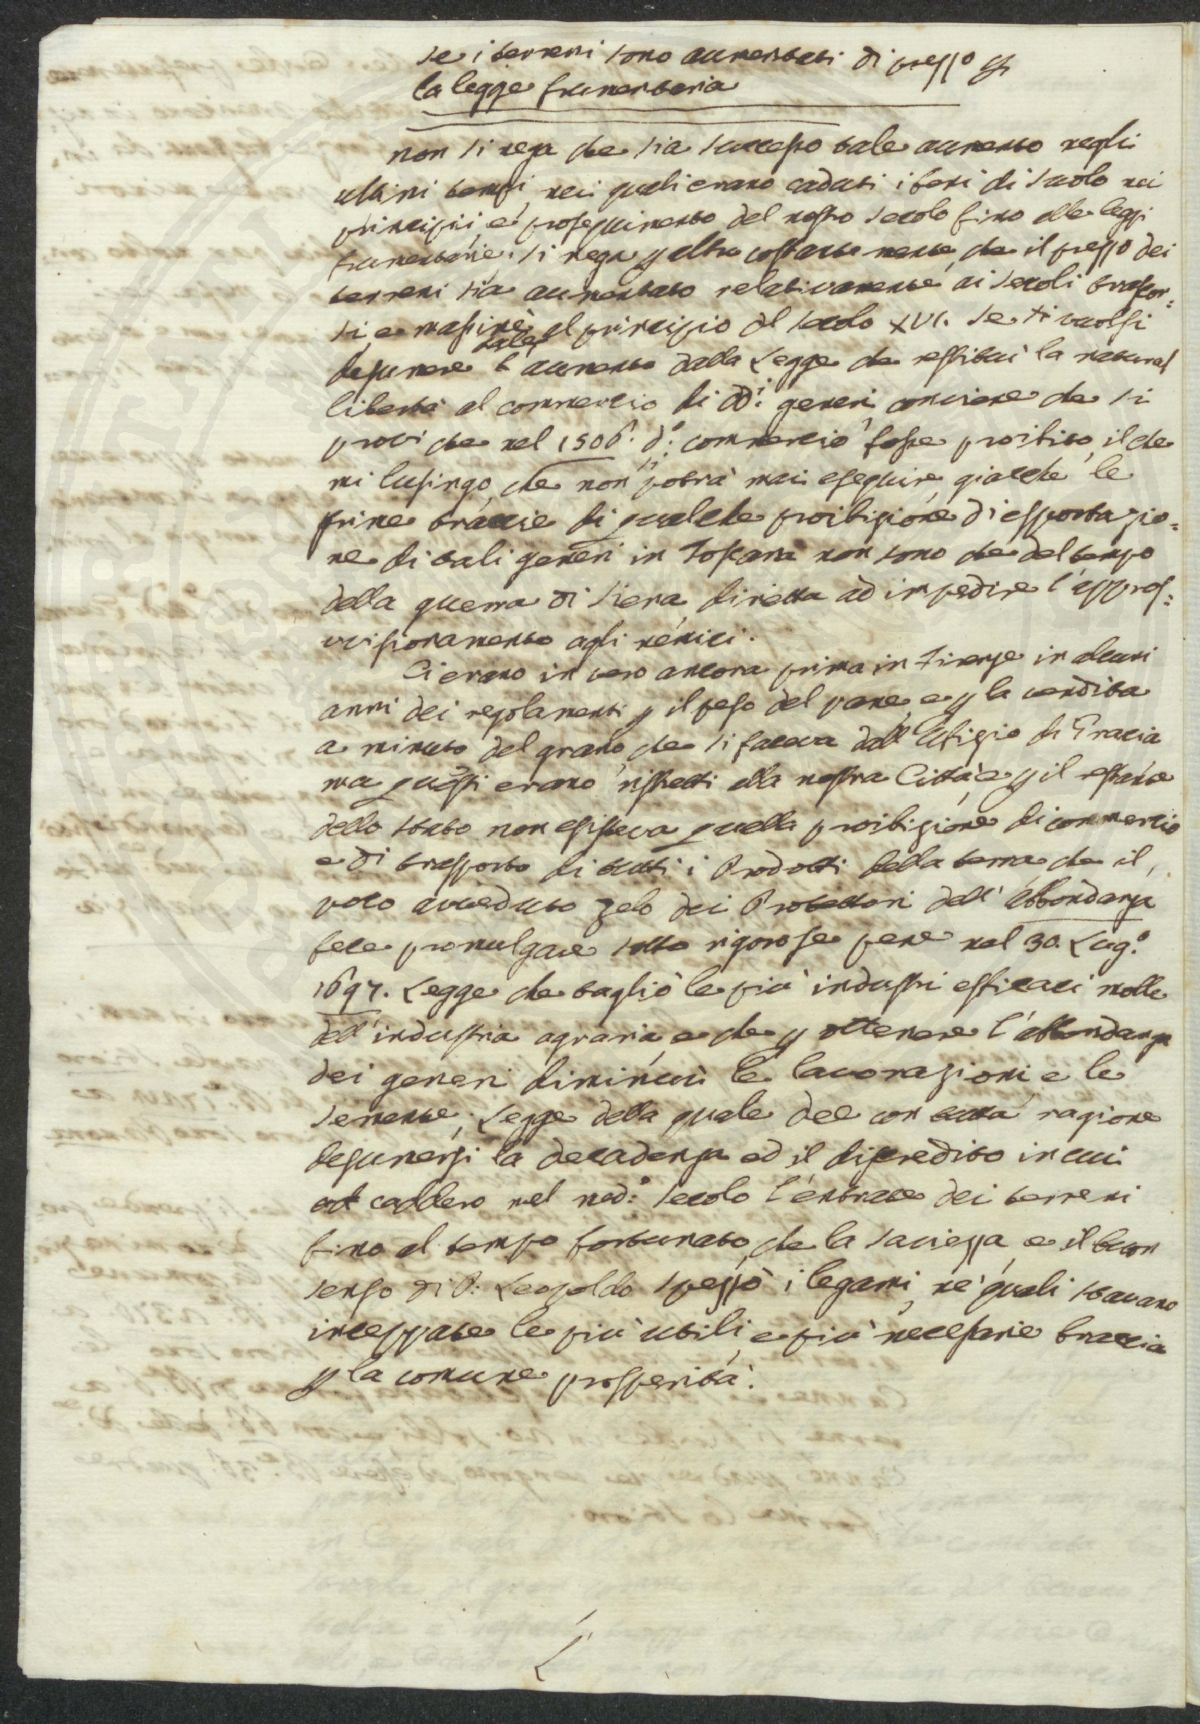 Se i terreni sono aumentati di prezzo p
la legge frumentaria
non si nega che sia successo tale aumento negli
ultimi tempi, nei quali erano caduti i beni di suolo nei
principii, e proseguimento del nostro secolo fino alle leggi
frumentarie. si nega p altro costantemente che il prezzo dei
terreni sia aumentato relativamente ai secoli trascor=
si, e massime al principio del secolo XVI. Se si vuolsi
desumere tale aumento dalla Legge che restituì la natural
libertà al commercio di dd.i generi conviene che si
provi che nel 1506. d.o commercio fosse proibito, il che
mi lusingo che non si potrà mai eseguire giacchè le
prime traccie di qualche proibizione d'esportazio=
ne di tali generi in Toscana non sono che del tempo
della guerra di Siena diretta ad impedire l'approv=
visionamento agli nemici.
Ci erano in vero ancora prima in Firenze in alcuni
anni dei regolamenti p il peso del pane e p la vendita
a minuto del grano che si faceva dall'Ufizio di Grascia
ma questi erano ristretti alla nostra Città, e p il restante
dello stato non esisteva quella proibizione di commercio
e di trasporto di tutti i Prodotti della terra che il
poco avveduto zelo dei Protettori dell'abbondanza
fece promulgare sotto rigorose pene nel 30. Lug.o
1697. Legge che tagliò le più industri efficaci molle
dell'industria agraria e che p ottenere l'abbondanza
dei generi diminuì le lavorazioni e le
semente, Legge della quale dee con tutta ragione
desumersi la decadenza ed il discredito in cui
caddero nel med.o secolo l'entrate dei terreni
fino al tempo fortunato che la saviezza e il buon
senso di P. Leopoldo spezzò i legami, ne' quali stavano
inceppate le più utili, e più necessarie braccia
p la comune prosperità.